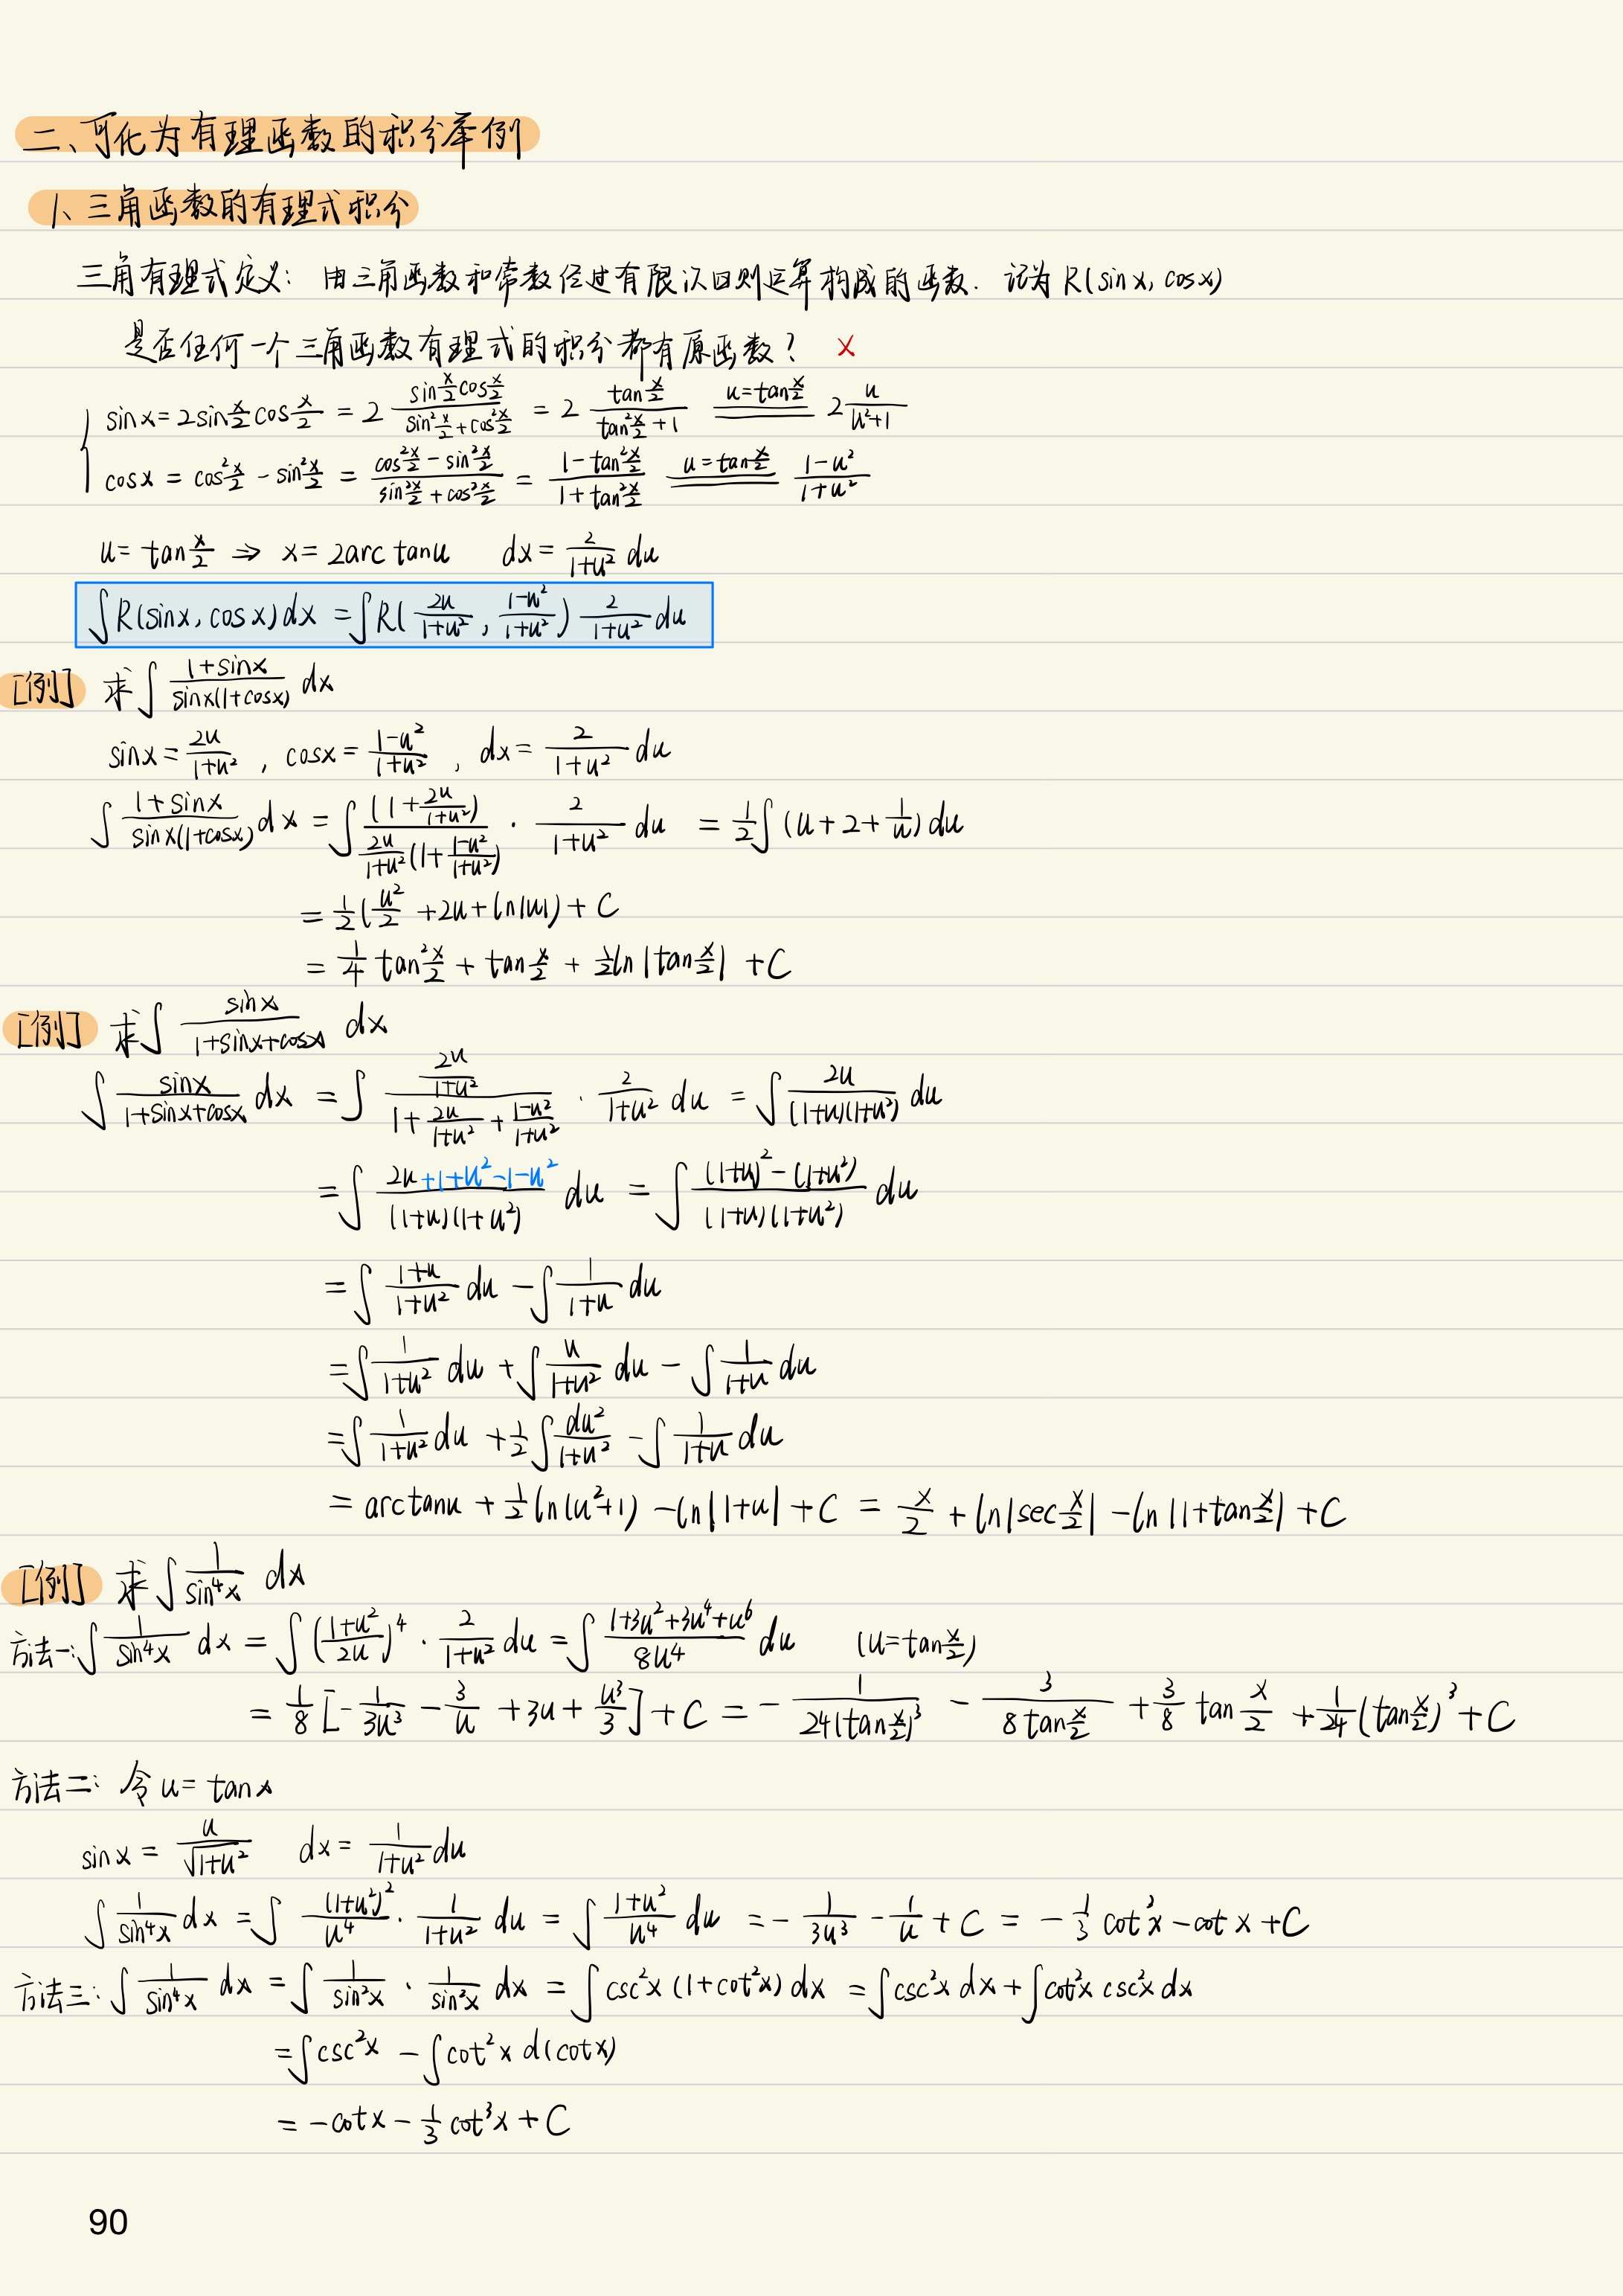 二、可化为有理函数的积分举例
1、三角函数的有理式积分
三角有理式定义: 由三角函数和常数经过有限次四则运算构成的函数. 记为 R(sin x, cos x)
是否任何一个三角函数有理式的积分都有原函数? ×
{ sin x = 2 sin x/2 cos x/2 = 2 (sin x/2 cos x/2)/(sin² x/2 + cos² x/2) = 2 (tan x/2)/(tan² x/2 + 1) u=tan x/2 ═ 2 u/(u²+1)
cos x = cos² x/2 - sin² x/2 = (cos² x/2 - sin² x/2)/(sin² x/2 + cos² x/2) = (1 - tan² x/2)/(1 + tan² x/2) u=tan x/2 ═ (1-u²)/(1+u²)
u = tan x/2 ⇒ x = 2arc tan u dx = 2/(1+u²) du
∫R(sin x, cos x)dx = ∫R(2u/(1+u²), (1-u²)/(1+u²)) 2/(1+u²) du
[例] 求∫ (1+sin x)/(sin x(1+cos x)) dx
sin x = 2u/(1+u²), cos x = (1-u²)/(1+u²), dx = 2/(1+u²) du
∫ (1+sin x)/(sin x(1+cos x)) dx = ∫ (1+2u/(1+u²))/(2u/(1+u²) (1+(1-u²)/(1+u²))) · 2/(1+u²) du = 1/2 ∫(u+2+1/u) du
= 1/2 (u²/2 + 2u + ln|u|) + C
= 1/4 tan² x/2 + tan x/2 + 1/2 ln|tan x/2| + C
[例] 求∫ sin x/(1+sin x+cos x) dx
∫ sin x/(1+sin x+cos x) dx = ∫ (2u/(1+u²))/(1+2u/(1+u²)+(1-u²)/(1+u²)) · 2/(1+u²) du = ∫ 2u/((1+u)(1+u²)) du
= ∫ (2u+1+u²-1-u²)/((1+u)(1+u²)) du = ∫ ((1+u)²-(1+u²))/((1+u)(1+u²)) du
= ∫ (1+u)/(1+u²) du - ∫ 1/(1+u) du
= ∫ 1/(1+u²) du + ∫ u/(1+u²) du - ∫ 1/(1+u) du
= ∫ 1/(1+u²) du + 1/2 ∫ du²/(1+u²) - ∫ 1/(1+u) du
= arctan u + 1/2 ln(u²+1) - ln|1+u| + C = x/2 + ln|sec x/2| - ln|1+tan x/2| + C
[例] 求∫ 1/sin⁴x dx
方法一: ∫ 1/sin⁴x dx = ∫ ((1+u²)/2u)⁴ · 2/(1+u²) du = ∫ (1+3u²+3u⁴+u⁶)/8u⁴ du (u=tan x/2)
= 1/8 [-1/3u³ - 3/u + 3u + u³/3] + C = - 1/(24(tan x/2)³) - 3/(8 tan x/2) + 3/8 tan x/2 + 1/24 (tan x/2)³ + C
方法二: 令 u = tan x
sin x = u/√(1+u²) dx = 1/(1+u²) du
∫ 1/sin⁴x dx = ∫ (1+u²)²/u⁴ · 1/(1+u²) du = ∫ (1+u²)/u⁴ du = - 1/3u³ - 1/u + C = - 1/3 cot³x - cot x + C
方法三: ∫ 1/sin⁴x dx = ∫ 1/sin²x · 1/sin²x dx = ∫csc²x (1+cot²x) dx = ∫csc²x dx + ∫cot²x csc²x dx
= ∫csc²x - ∫cot²x d(cot x)
= -cot x - 1/3 cot³x + C
90